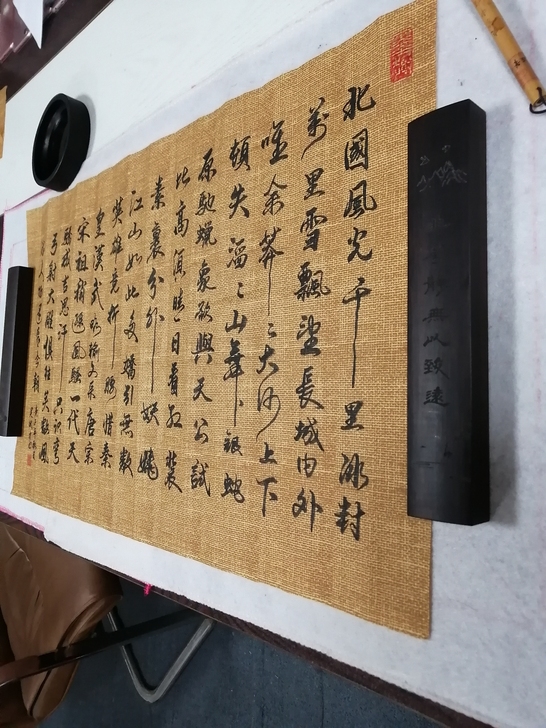 北國風光千里冰封
萬里雪飄望長城内外
唯余莽〻大河上下
頓失滔〻山舞銀蛇
原馳蠟象欲與天公試
比高須晴日看红裝
素裹分外妖嬈
江山如此多嬌引無數
英雄竞折腰惜秦
皇漢武略输文采唐宗
宋祖稍遜風騷一代天
驕成吉思汗只识弯
弓射大雕俱往矣數風
流人物还看今朝
無以致遠